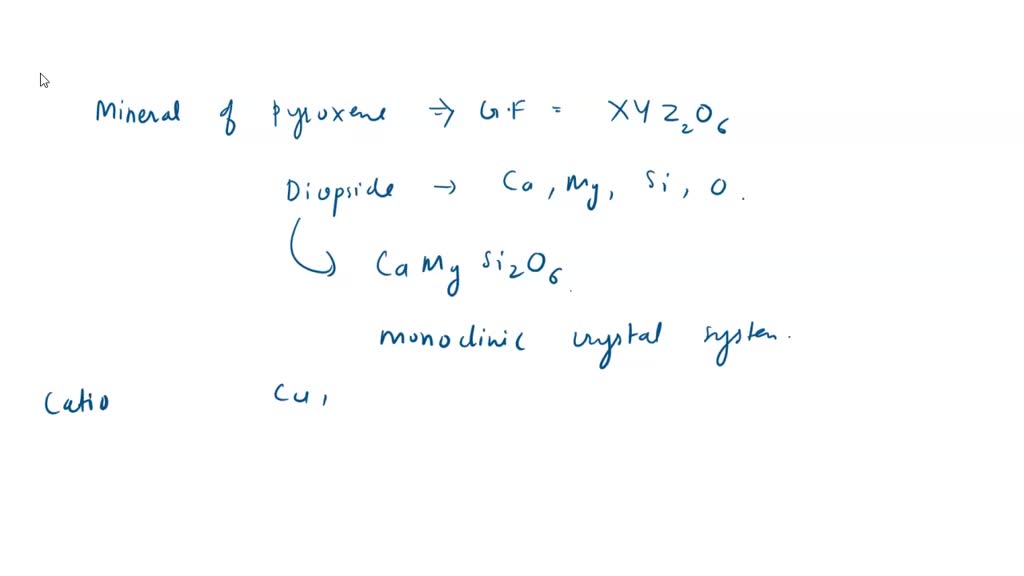 Mineral of pyroxene ⇒ G.F = XYZ₂O₆
Diopside → Ca, Mg, Si, O.
CaMgSi₂O₆.
monoclinic crystal system.
Catio Ca,